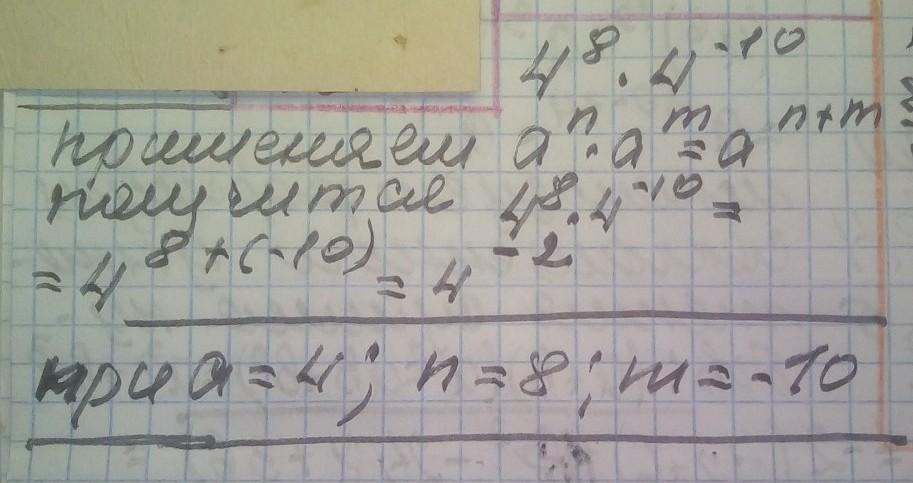 4⁸ · 4⁻¹⁰
применяем aⁿ · aᵐ = aⁿ⁺ᵐ
получится 4⁸ · 4⁻¹⁰ =
= 4⁸⁺⁽⁻¹⁰⁾ = 4⁻²
при a = 4; n = 8; m = -10